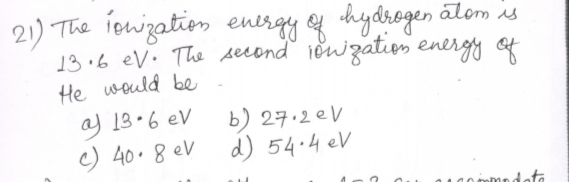 21) The ionization energy of hydrogen atom is
13.6 eV. The second ionization energy of
He would be
a) 13.6 eV b) 27.2 eV
c) 40.8 eV d) 54.4 eV